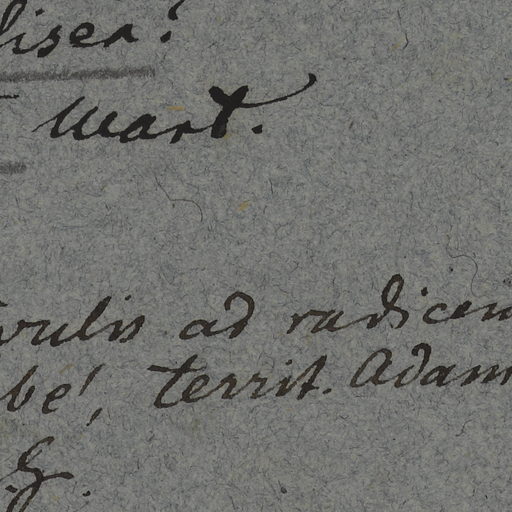 lisea?
Mart.
rvulis ad radicem
be', territ. Adam
G.